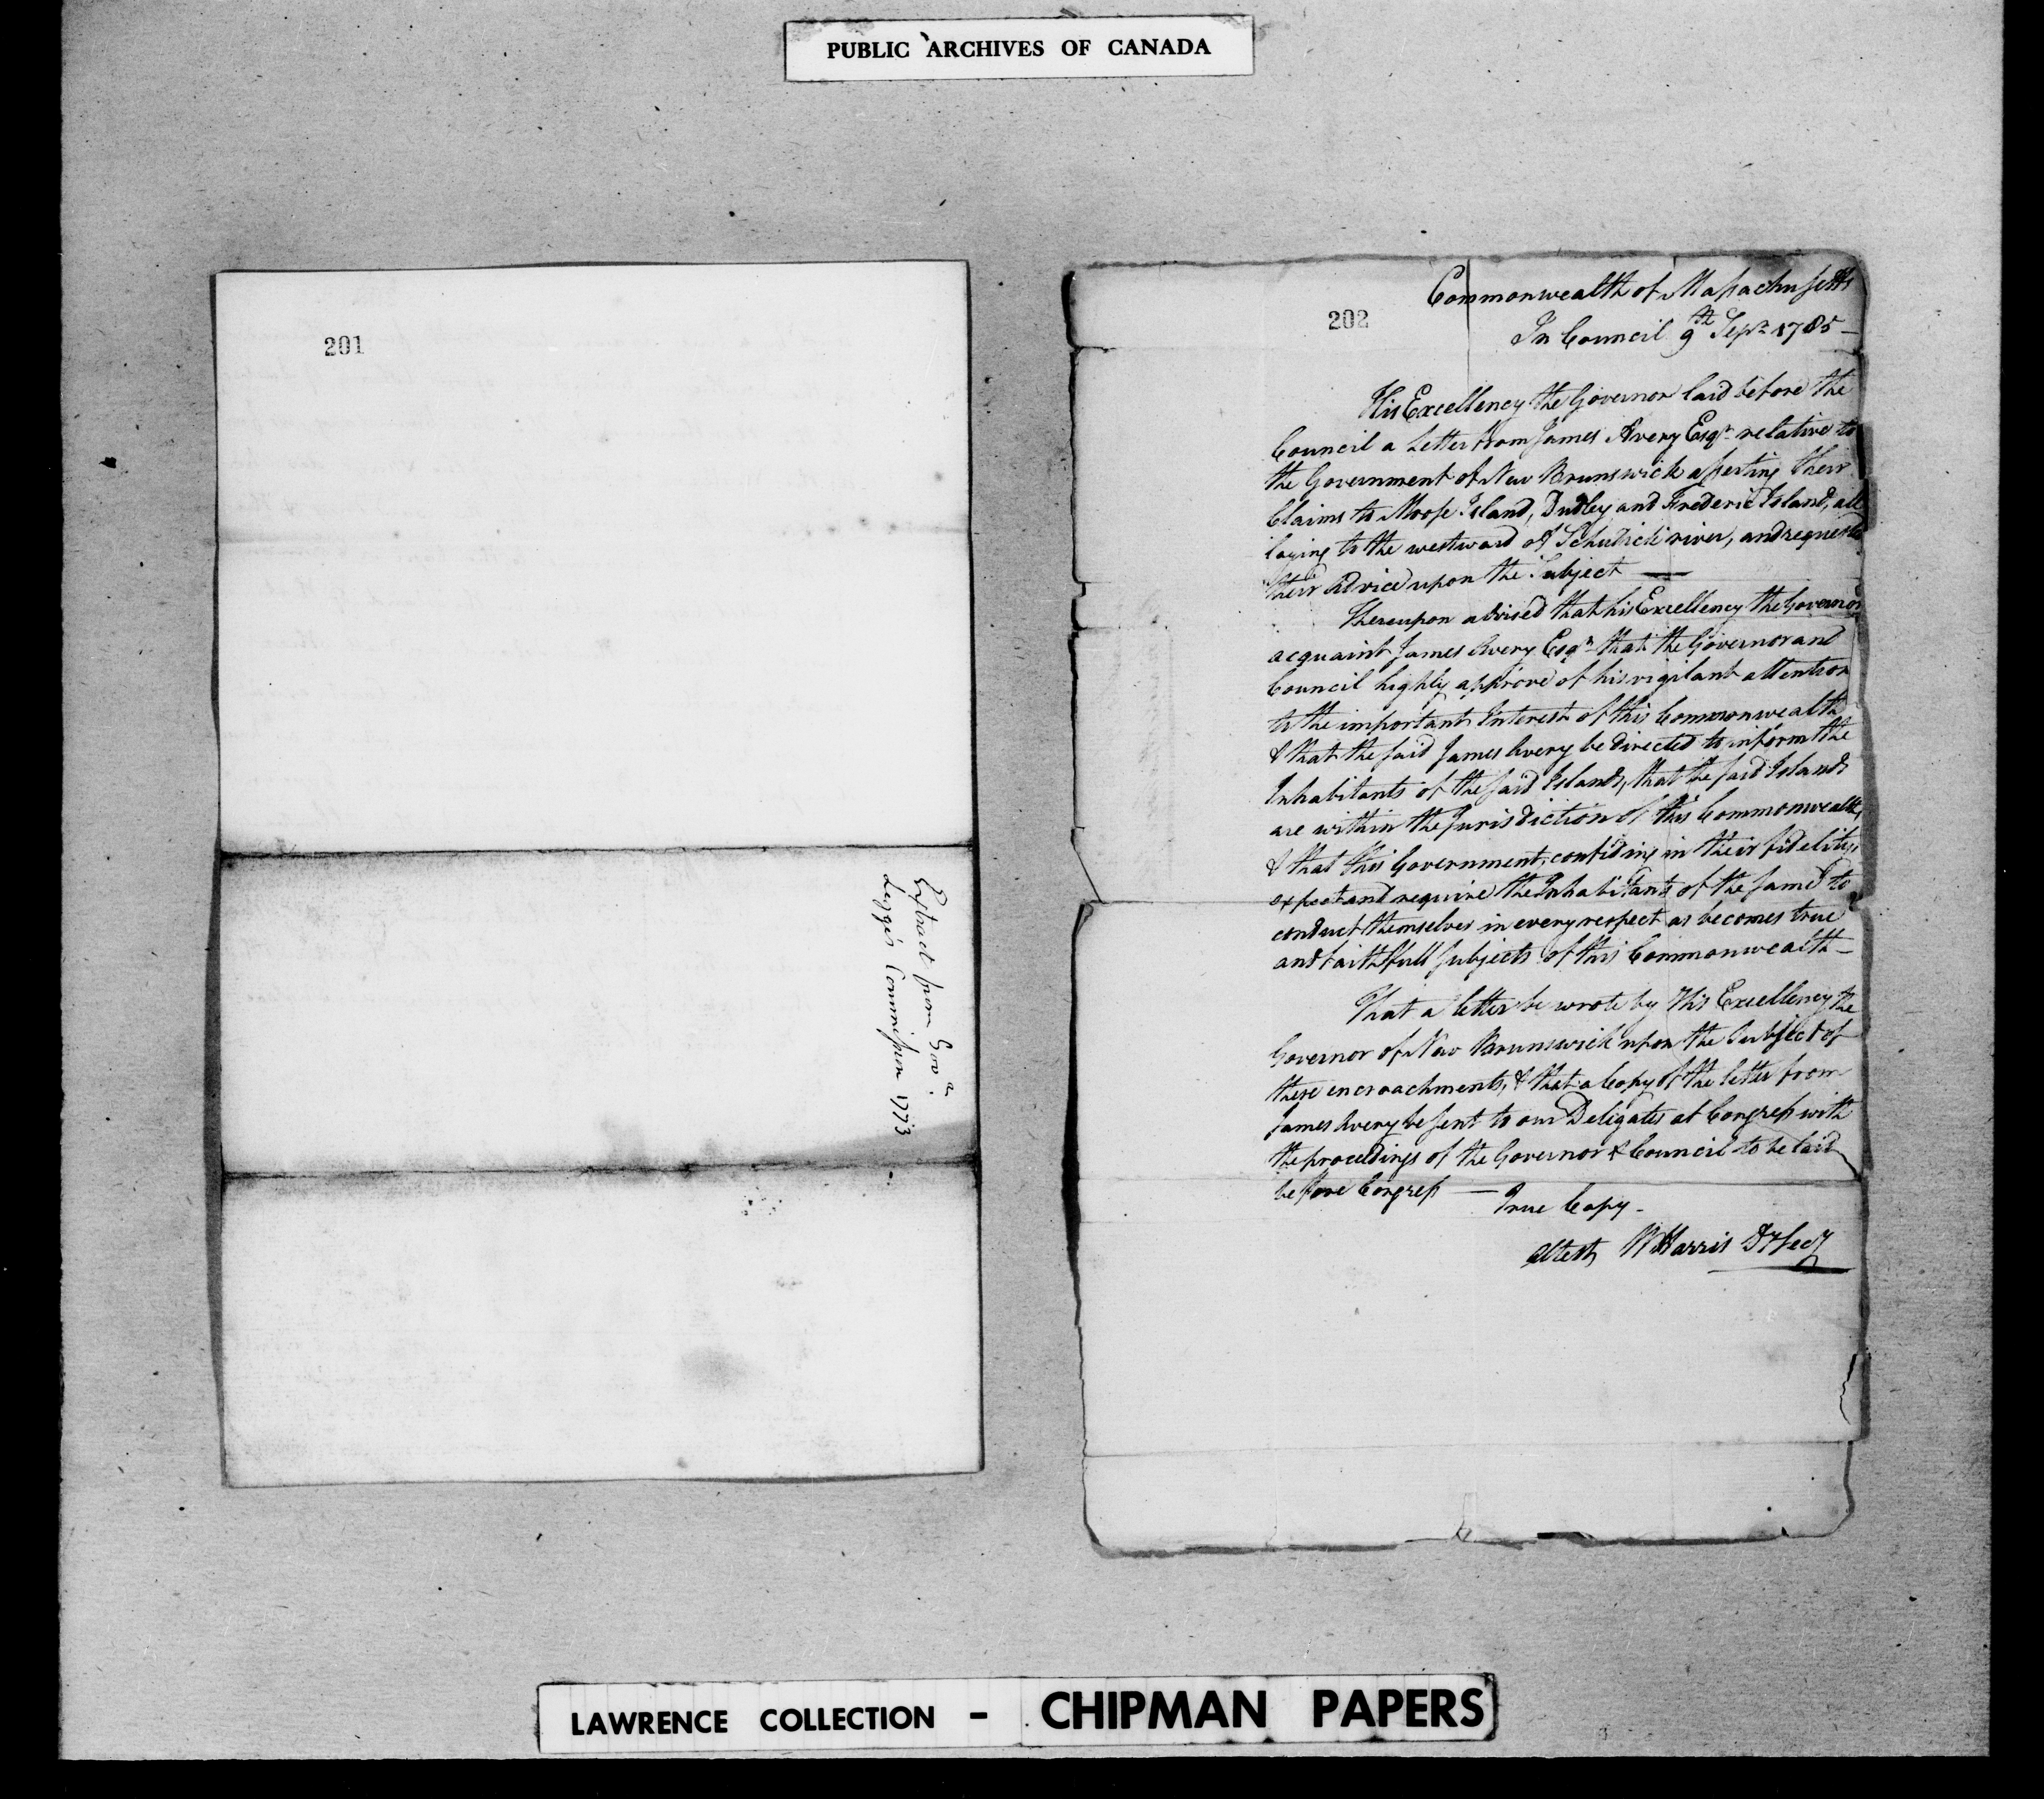 PUBLIC ARCHIVES OF CANADA
201
Extract from Gov.r
Legge's Commission 1773
202
Commonwealth of Massachusetts
In Council 9th Sepr. 1785 —
His Excellency the Governor laid before the
Council a Letter from James Avery Esqr. relative to
the Government of New Brunswick asserting their
Claims to Moose Island, Dudley and Frederic Island, all
laying to the westward of Schudick river, and requests
their Advice upon the Subject —
Thereupon advised that his Excellency the Governor
acquaint James Avery Esqr. that the Governor and
Council highly approve of his vigilant attention
to the important Interest of this Commonwealth
& that the said James Avery be directed to inform the
Inhabitants of the said Islands, that the said Islands
are within the Jurisdiction of this Commonwealth,
& that this Government, confiding in their fidelity,
expect and require the Inhabitants of the same to
conduct themselves in every respect as becomes true
and faithfull subjects of this Commonwealth —
That a letter be wrote by His Excellency the
Governor of New Brunswick upon the Subject of
these encroachments, & that a Copy of the letter from
James Avery be sent to our Deligates at Congress with
the proceedings of the Governor & Council to be laid
before Congress — True Copy -
Attest, W Harris Dy Secy
LAWRENCE COLLECTION - CHIPMAN PAPERS